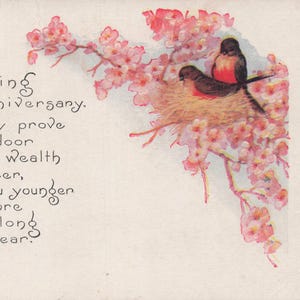 ing
niversary.
prove
door
wealth
er,
younger
ore
long
ear.